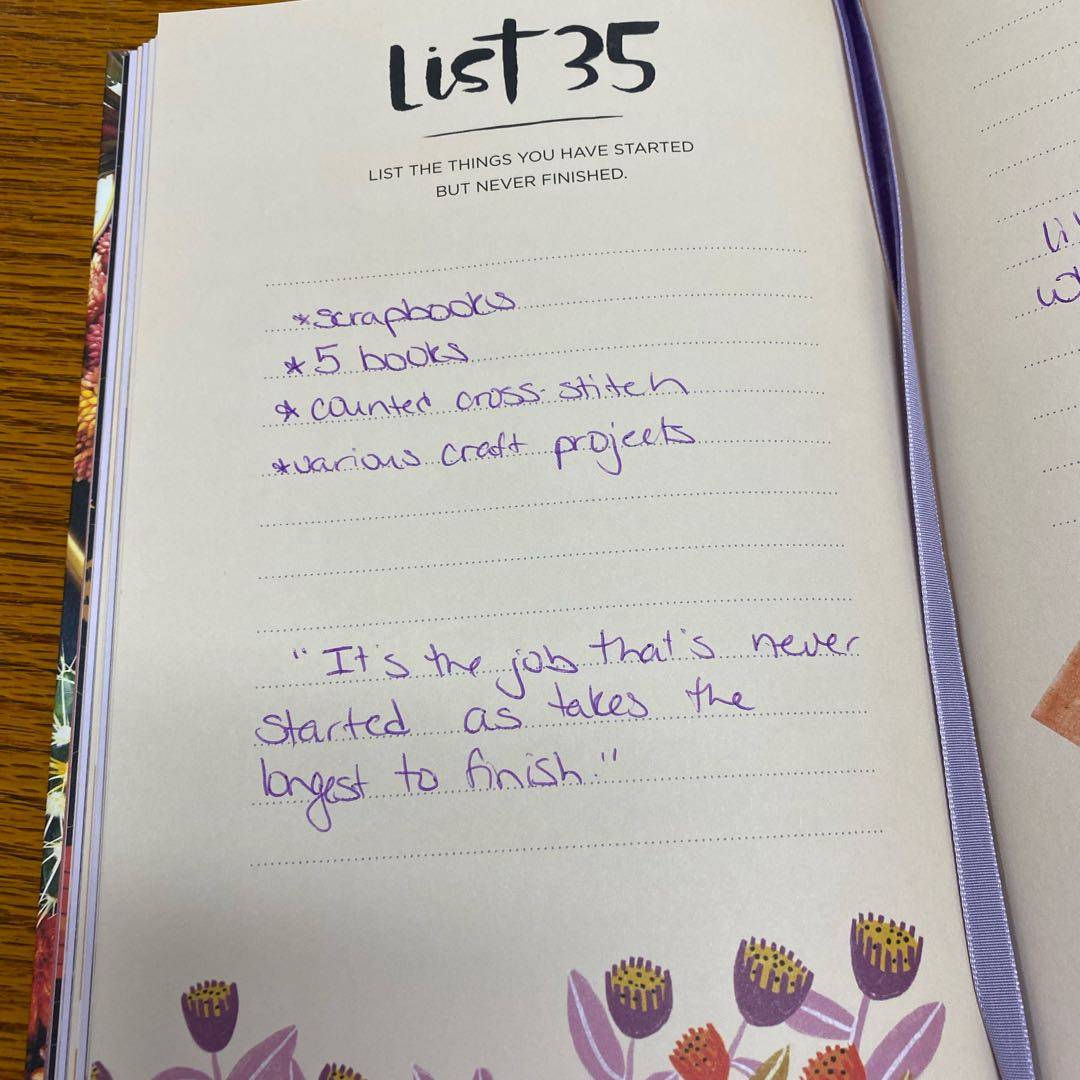 List 35
LIST THE THINGS YOU HAVE STARTED
BUT NEVER FINISHED.
*scrapbooks
*5 books
*counted cross-stitch
*various craft projects
"It's the job that's never
started as takes the
longest to finish."